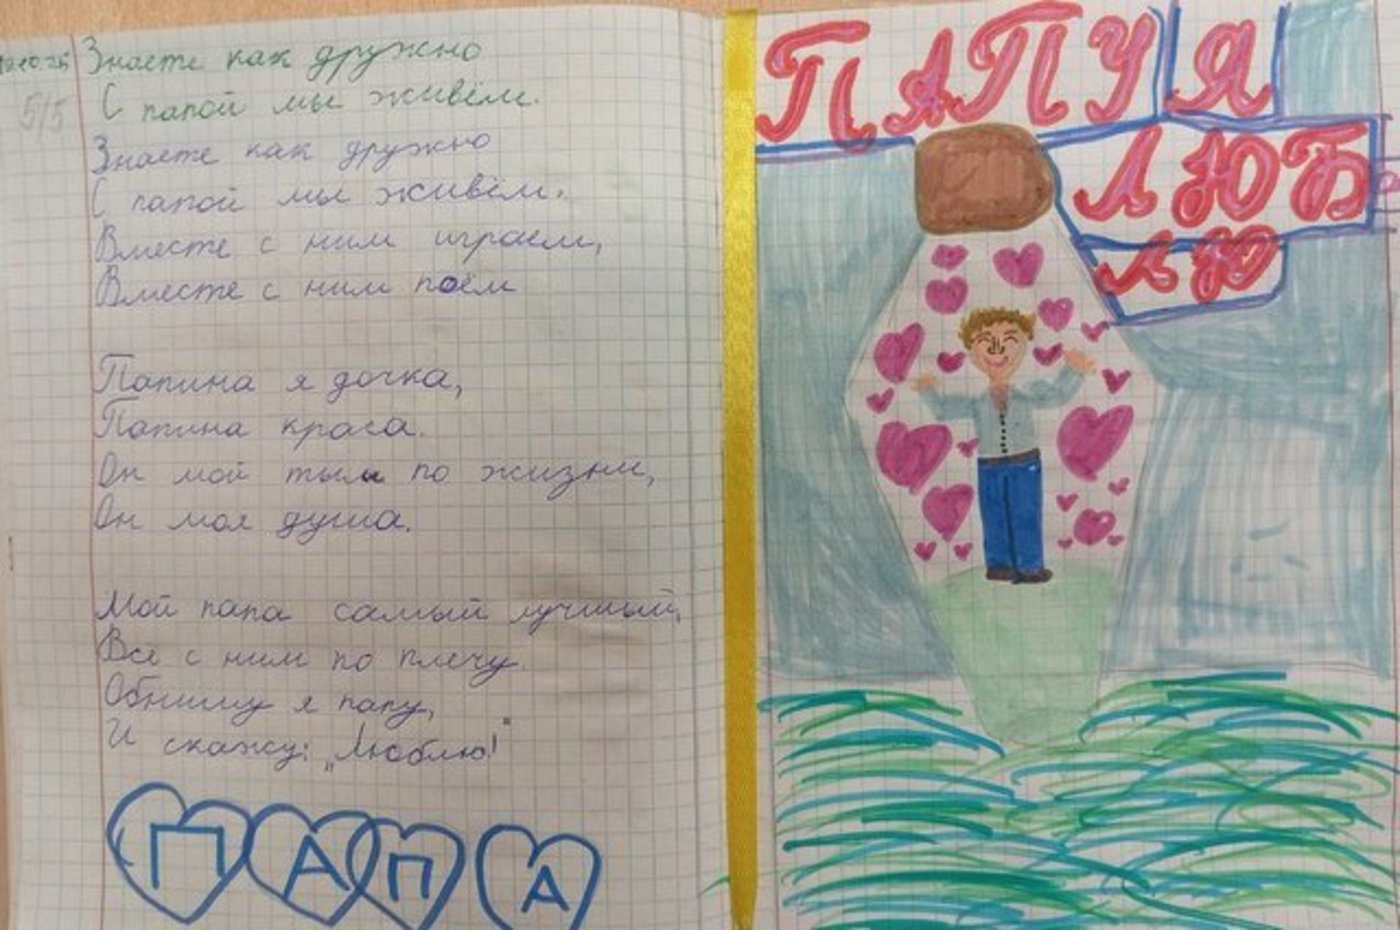 Знаете как дружно
С папой мы живём.
5/5
Знаете как дружно
С папой мы живём.
Вместе с ним играем,
Вместе с ним поём
Папина я дочка,
Папина краса.
Он мой тыл по жизни,
Он моя душа.
Мой папа самый лучший,
Все с ним по плечу
Обниму я папу,
И скажу: „Люблю!"
ПАПА
ПАПУЯ
ЛЮБ
ЛЮ